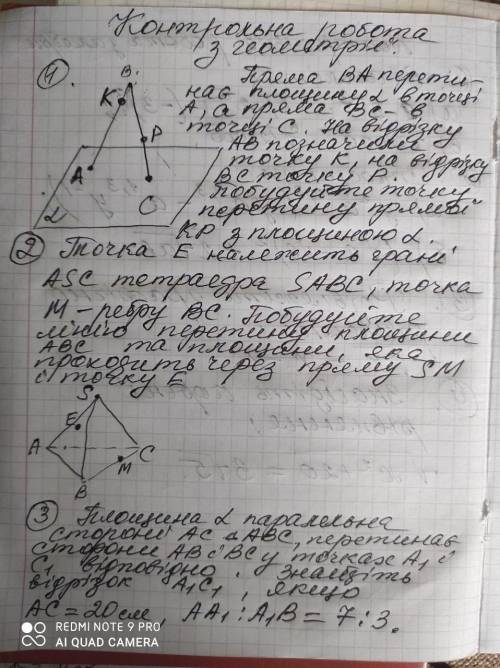 Контрольна робота
з геометрії.
1. Пряма ВА перети-
нає площину α в точці
А, а пряма ВС - в
точці С. На відрізку
АВ позначили
точку К, на відрізку
ВС точку Р.
Побудуйте точку
перетину прямої
КР з площиною α.
В
К
Р
А
С
α
2 Точка Е належить грані
ASC тетраедра SABC, точка
М - ребру ВС. Побудуйте
лінію перетину площини
АВС та площини, яка
проходить через пряму SM
і точку Е
S
E
A
C
M
B
3 Площина α паралельна
стороні АС ΔАВС, перетинає
сторони АВ і ВС у точках А₁ і
С₁ відповідно. Знайдіть
відрізок А₁С₁, якщо
АС = 20 см, АА₁ : А₁В = 7 : 3.
REDMI NOTE 9 PRO
AI QUAD CAMERA